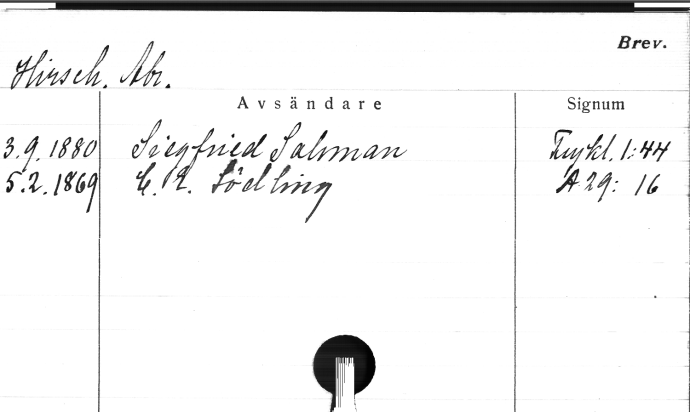 Brev.
Hirsch, Abr.
Avsändare Signum
3.9.1880 Siegfried Salman 1:44
5.2.1869 C. E. Södling A 29: 16